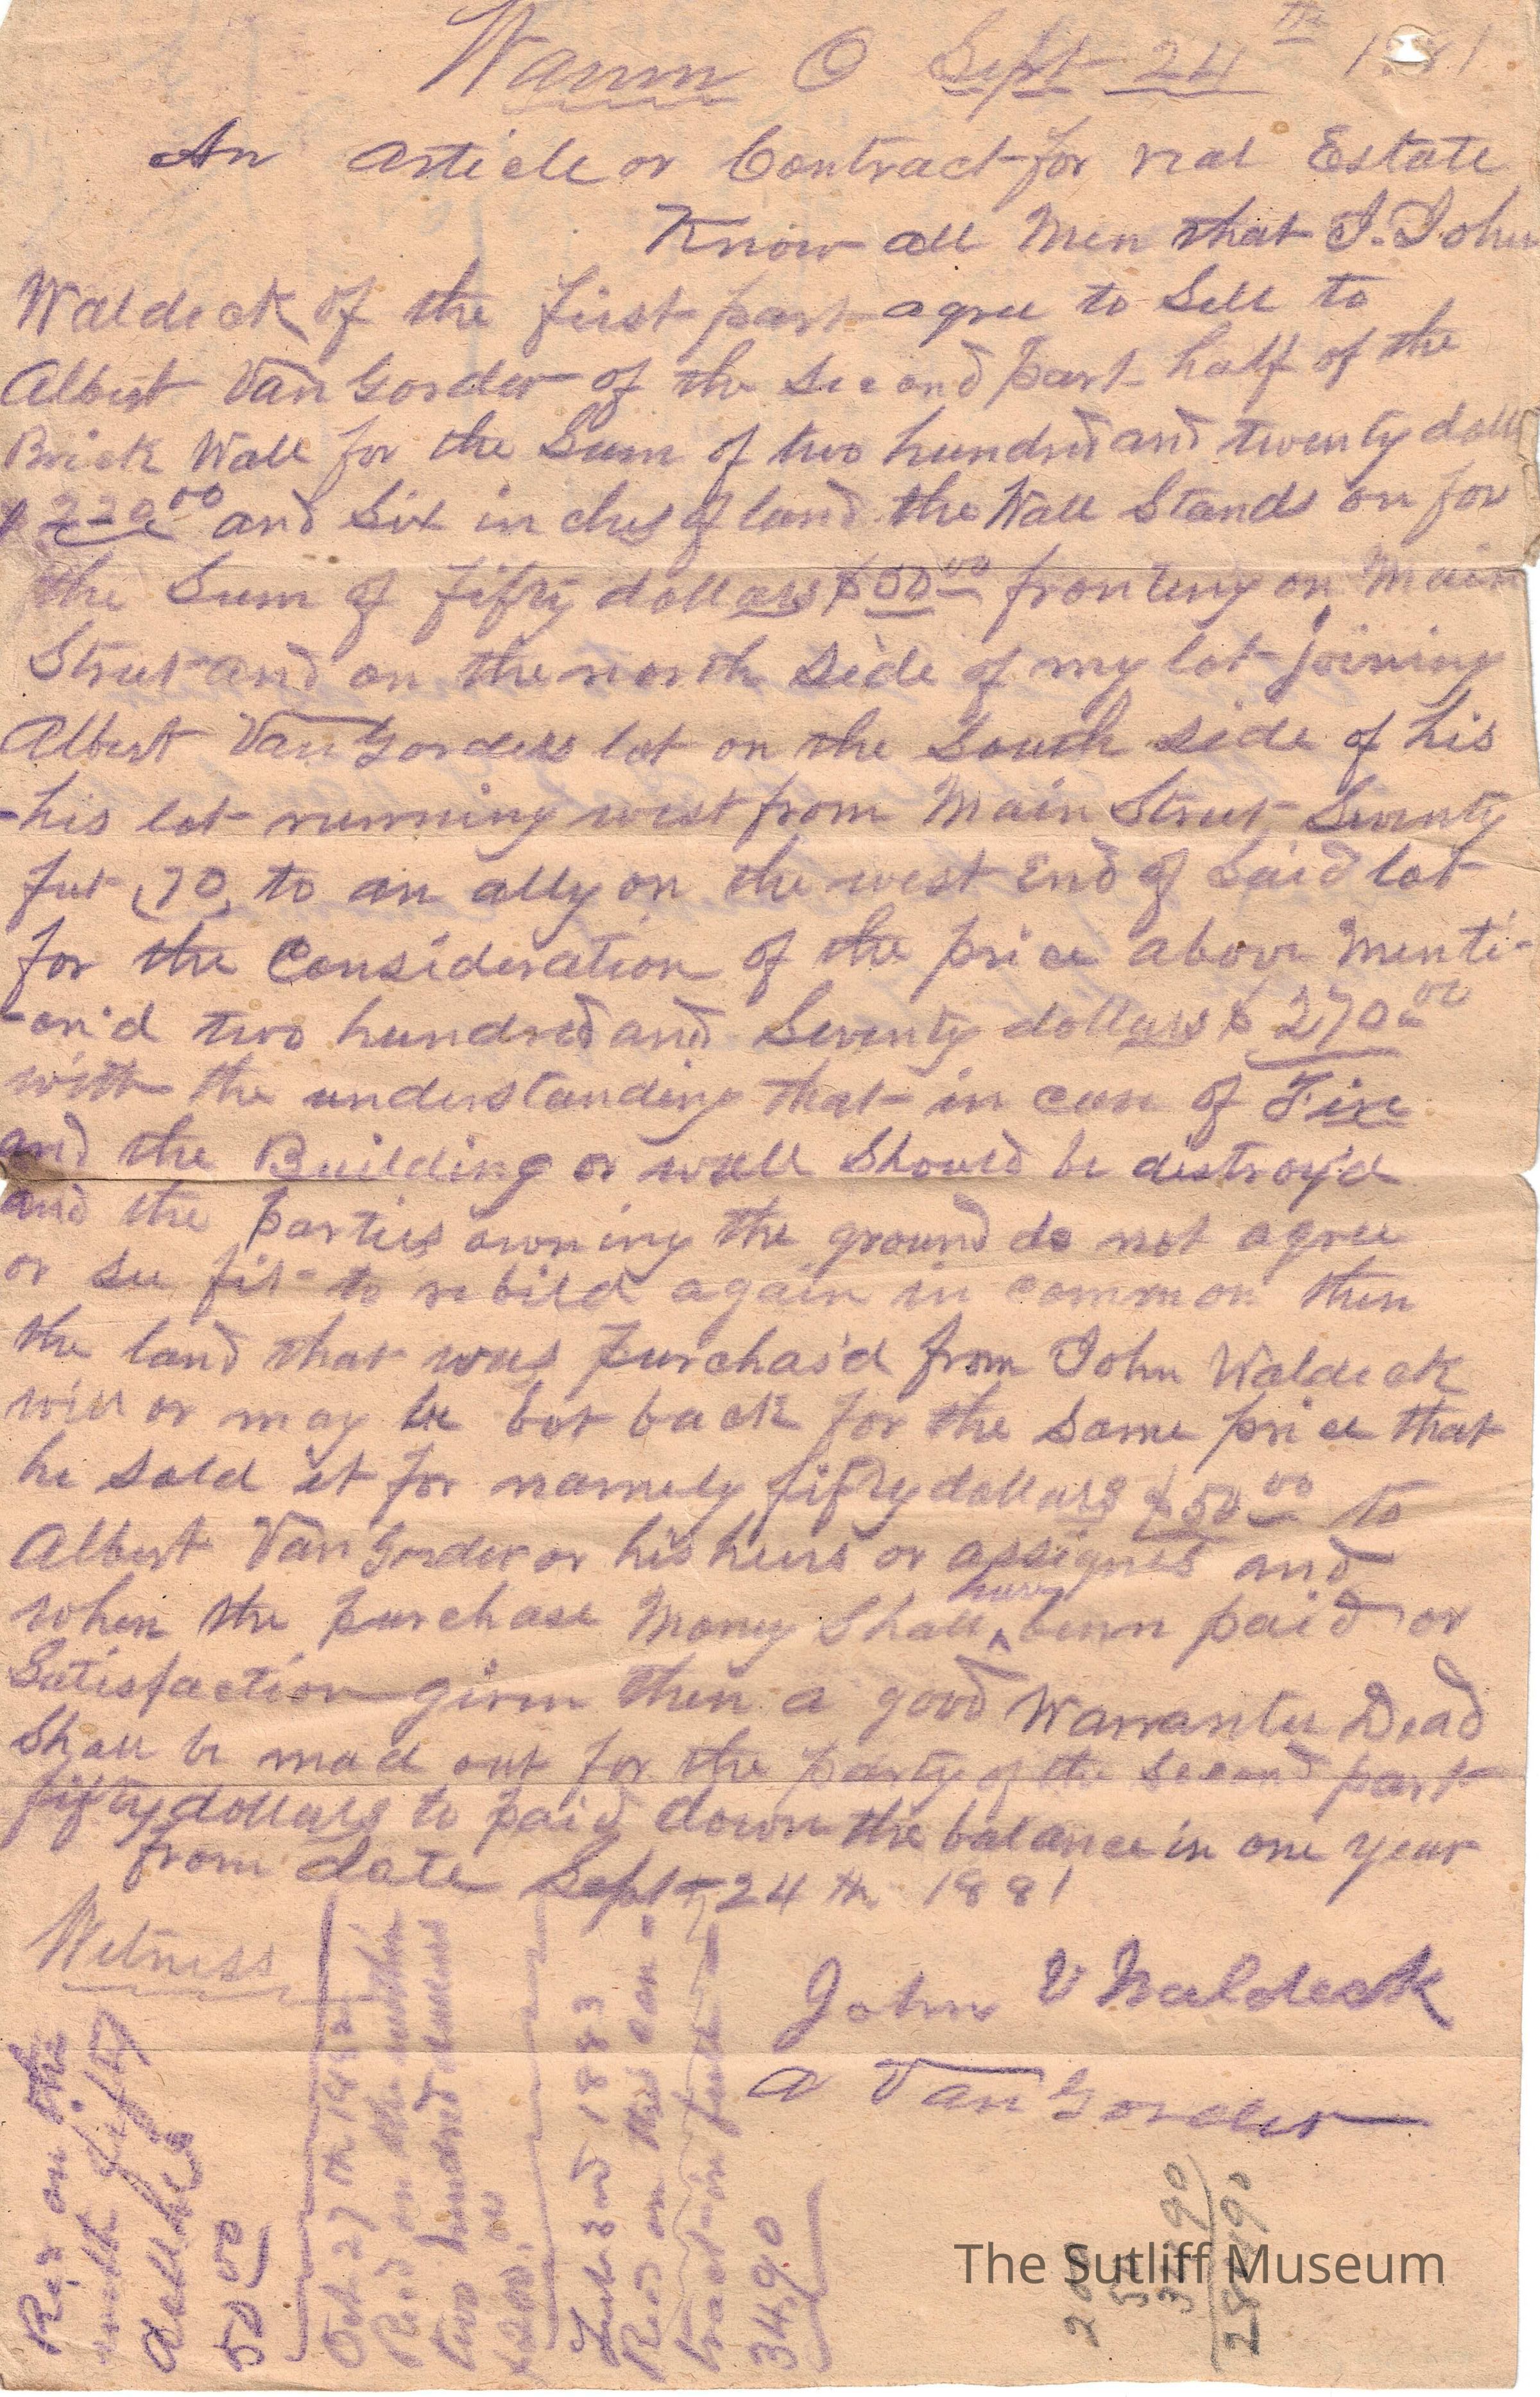 Warren O Sept 24th 1881
An article or Contract for real Estate
Know all Men that I. John
Waldeck of the first part agree to Sell to
Albert Van Gorder of the second part half of the
Brick Wall for the Sum of two hundred and twenty dolls
$220 00 and Six inches of land the Wall Stands on for
the Sum of fifty dollars $50 00 fronting on Main
Street and on the north Side of my lot joining
Albert Van Gorders lot on the South side of his
his lot running west from Main Street Seventy
feet (70) to an ally on the west End of Said lot
for the Consideration of the price above Menti-
-on'd two hundred and Seventy dollars $ 270 00
with the understanding that in case of Fire
and the Building or wall Should be distroy'd
and the parties owning the ground do not agree
or see fit to rebild again in common then
the land that was Purchas'd from John Waldeck
will or may be bot back for the Same price that
he sold it for namely fifty dollars $50 00 to
Albert Van Gorder or his heirs or assignes and
when the purchase Money Shall ^have benn paid or
Satisfaction given then a good Warrantee Dead
Shall be mad out for the party of the second part
fifty dollars to paid down the balance in one year
from date Sept 24 th 1881
Witness
John V Waldeck
A Van Gorder
Rec on the
with fifty
dollars
50 00
Oct 27th 1882
Recd on the within
two hundred dollars
$200.00
Feb 3rd 1883
Recd on this con-
tract in full
34,90
200
50
34 90
284 90
The Sutliff Museum